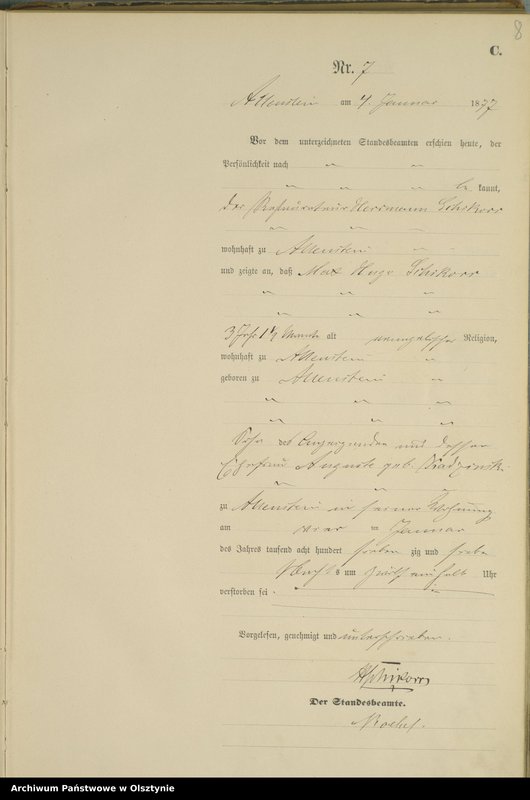 8
C.
Nr. 7
Allenstein am 4. Januar 1877
Vor dem unterzeichneten Standesbeamten erschien heute, der
Persönlichkeit nach
be kannt,
der Restaurateur Herrmann Schikorr
wohnhaft zu Allenstein
und zeigte an, daß Max Hugo Schikorr
3 Jahr 1½ Monate alt evangelischer Religion,
wohnhaft zu Allenstein
geboren zu Allenstein
Sohn des Anzeigenden und dessen
Ehefrau Auguste geb.
zu Allenstein in seiner Wohnung
am Januar
des Jahres tausend acht hundert sieben zig und sieben
Nachts um zwölf einhalb Uhr
verstorben sei.
Vorgelesen, genehmigt und unterschrieben.
HSchikorr
Der Standesbeamte.
Archiwum Państwowe w Olsztynie